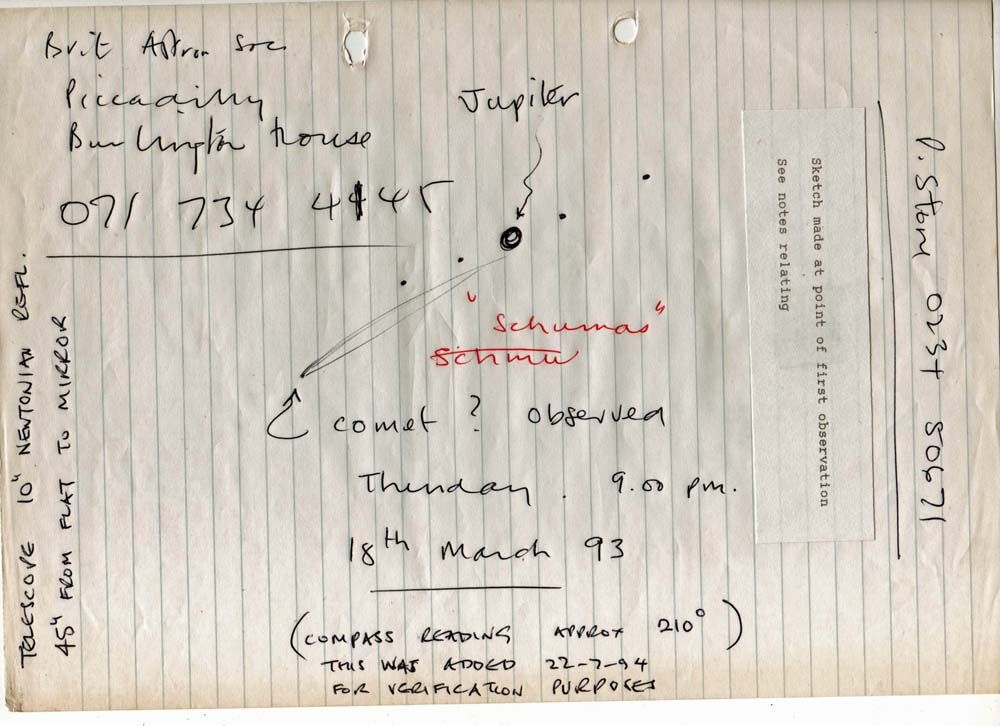 Brit Astron Soc
Piccadilly
Burlington House
071 734 4145
Jupiter
"Schumas"
comet ? observed
Thursday . 9.00 pm.
18th March 93
(COMPASS READING APPROX 210°)
THIS WAS ADDED 22-7-94
FOR VERIFICATION PURPOSES
TELESCOPE 10" NEWTONIAN REFL.
45" FROM FLAT TO MIRROR
Sketch made at point of first observation
See notes relating
P.